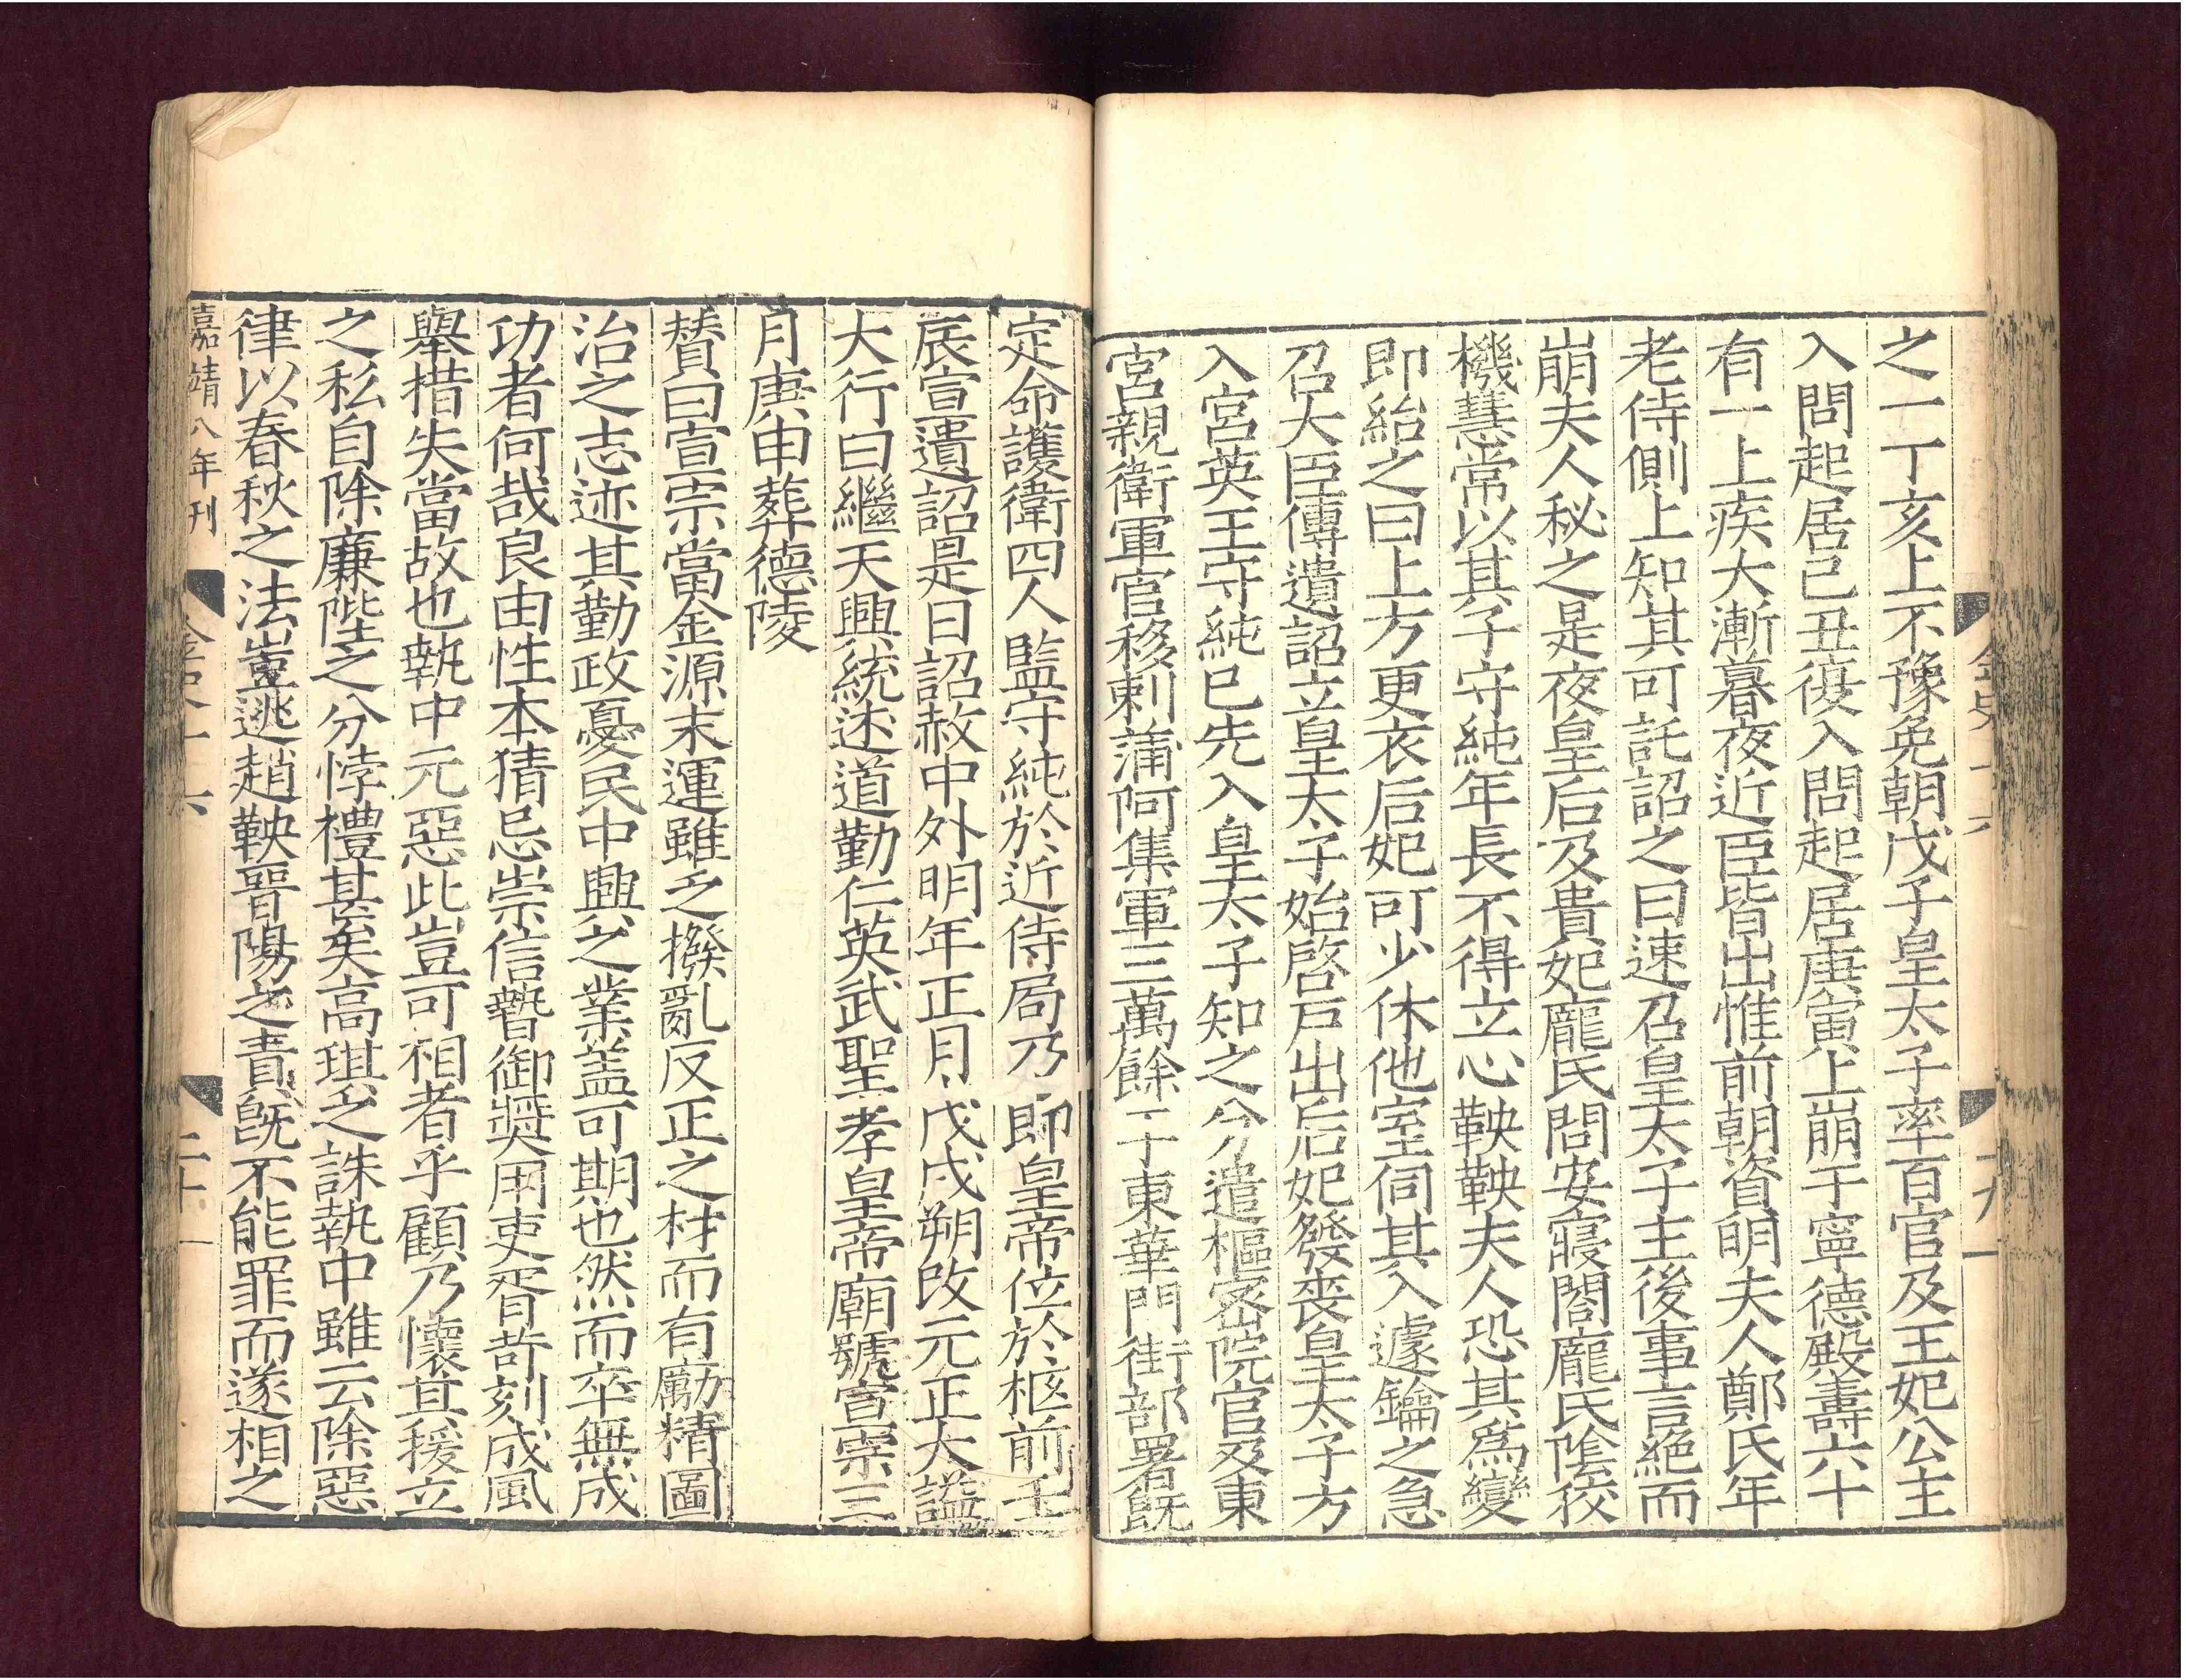 金史十六
十九
之一丁亥上不豫免朝戊子皇太子率百官及王妃公主
入問起居己丑復入問起居庚寅上崩于寧德殿壽六十
有一上疾大漸暮夜近臣皆出惟前朝資明夫人鄭氏年
老侍側上知其可託詔之曰速召皇太子主後事言絕而
崩夫人秘之是夜皇后及貴妃龐氏問安寢閤龐氏陰狡
機慧常以其子守純年長不得立心鞅鞅夫人恐其爲變
即紿之曰上方更衣后妃可少休他室伺其入遽鑰之急
召大臣傳遺詔立皇太子始啓戶出后妃發喪皇太子方
入宮英王守純已先入皇太子知之分遣樞密院官及東
宮親衛軍官移剌蒲阿集軍三萬餘于東華門街部署既
定命護衛四人監守純於近侍局乃即皇帝位於柩前壬
辰宣遺詔是日詔赦中外明年正月戊戌朔改元正大謚
大行曰繼天興統述道勤仁英武聖孝皇帝廟號宣宗三
月庚申葬德陵
賛曰宣宗當金源末運雖乏撥亂反正之材而有勵精圖
治之志迹其勤政憂民中興之業盖可期也然而卒無成
功者何哉良由性本猜忌崇信暬御奬用吏胥苛刻成風
舉措失當故也執中元惡此豈可相者乎顧乃懷其援立
之私自除廉陛之分悖禮甚矣高琪之誅執中雖云除惡
律以春秋之法豈逃趙鞅晉陽之責既不能罪而遂相之
嘉靖八年刊
金史十六
二十一